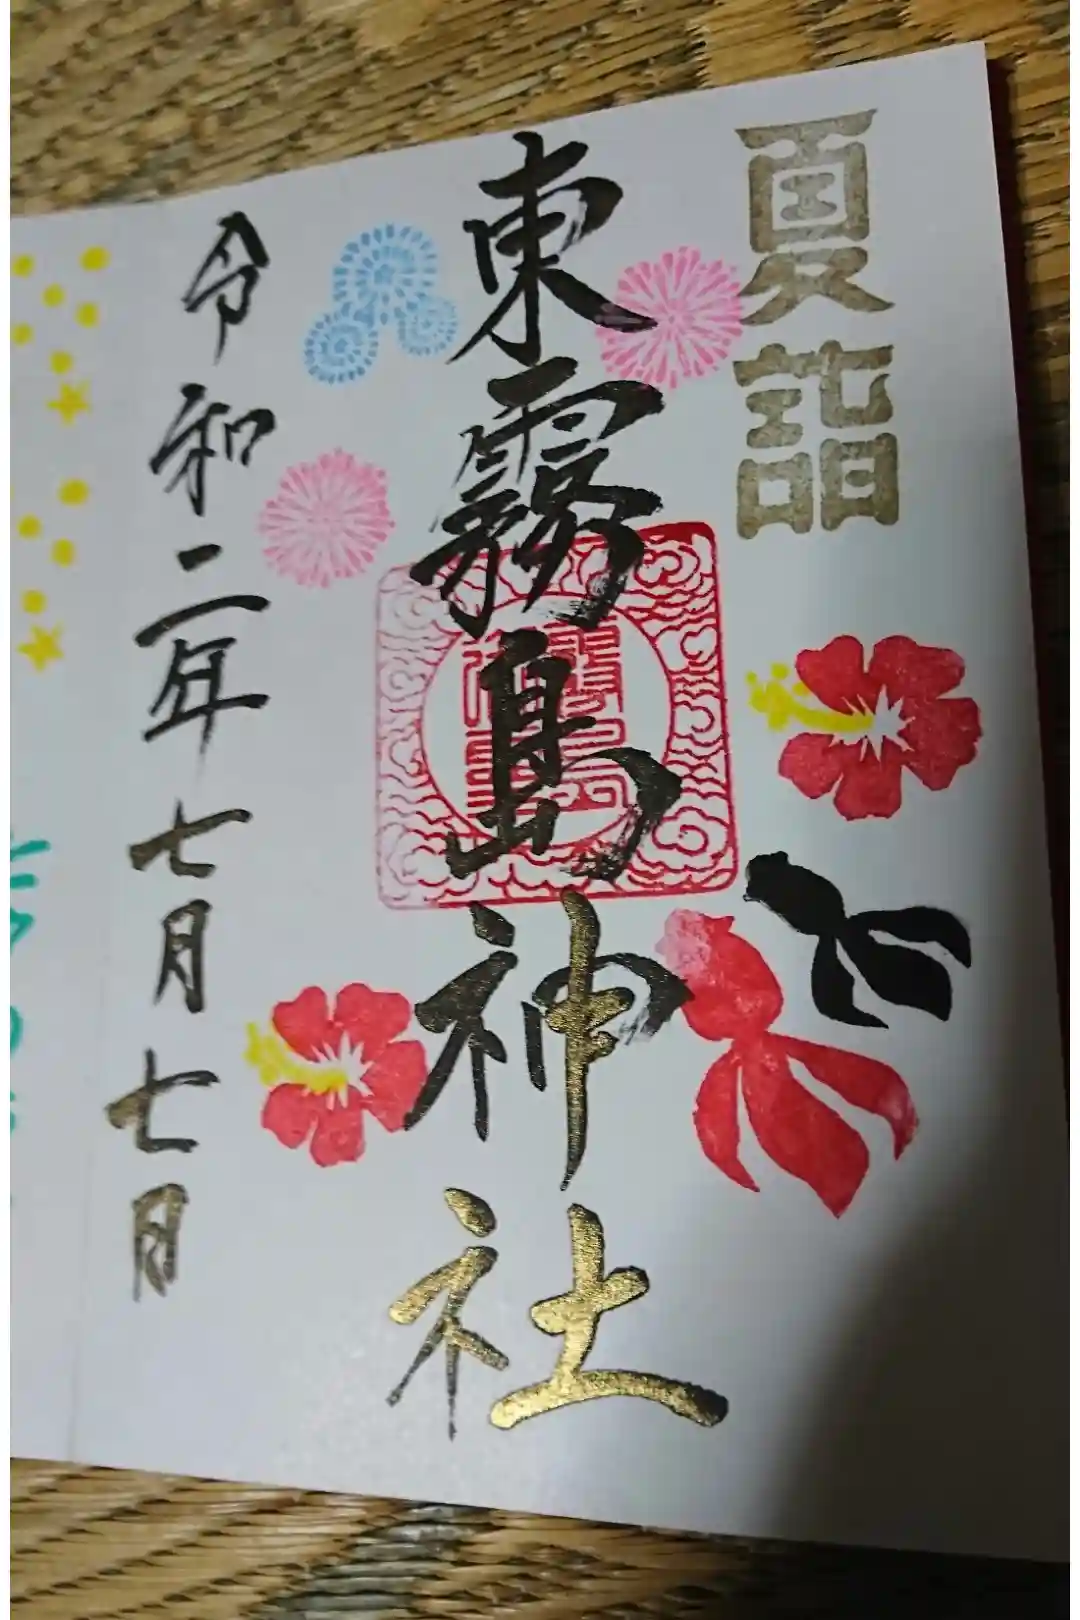 夏詣
東霧島神社
令和二年七月七日